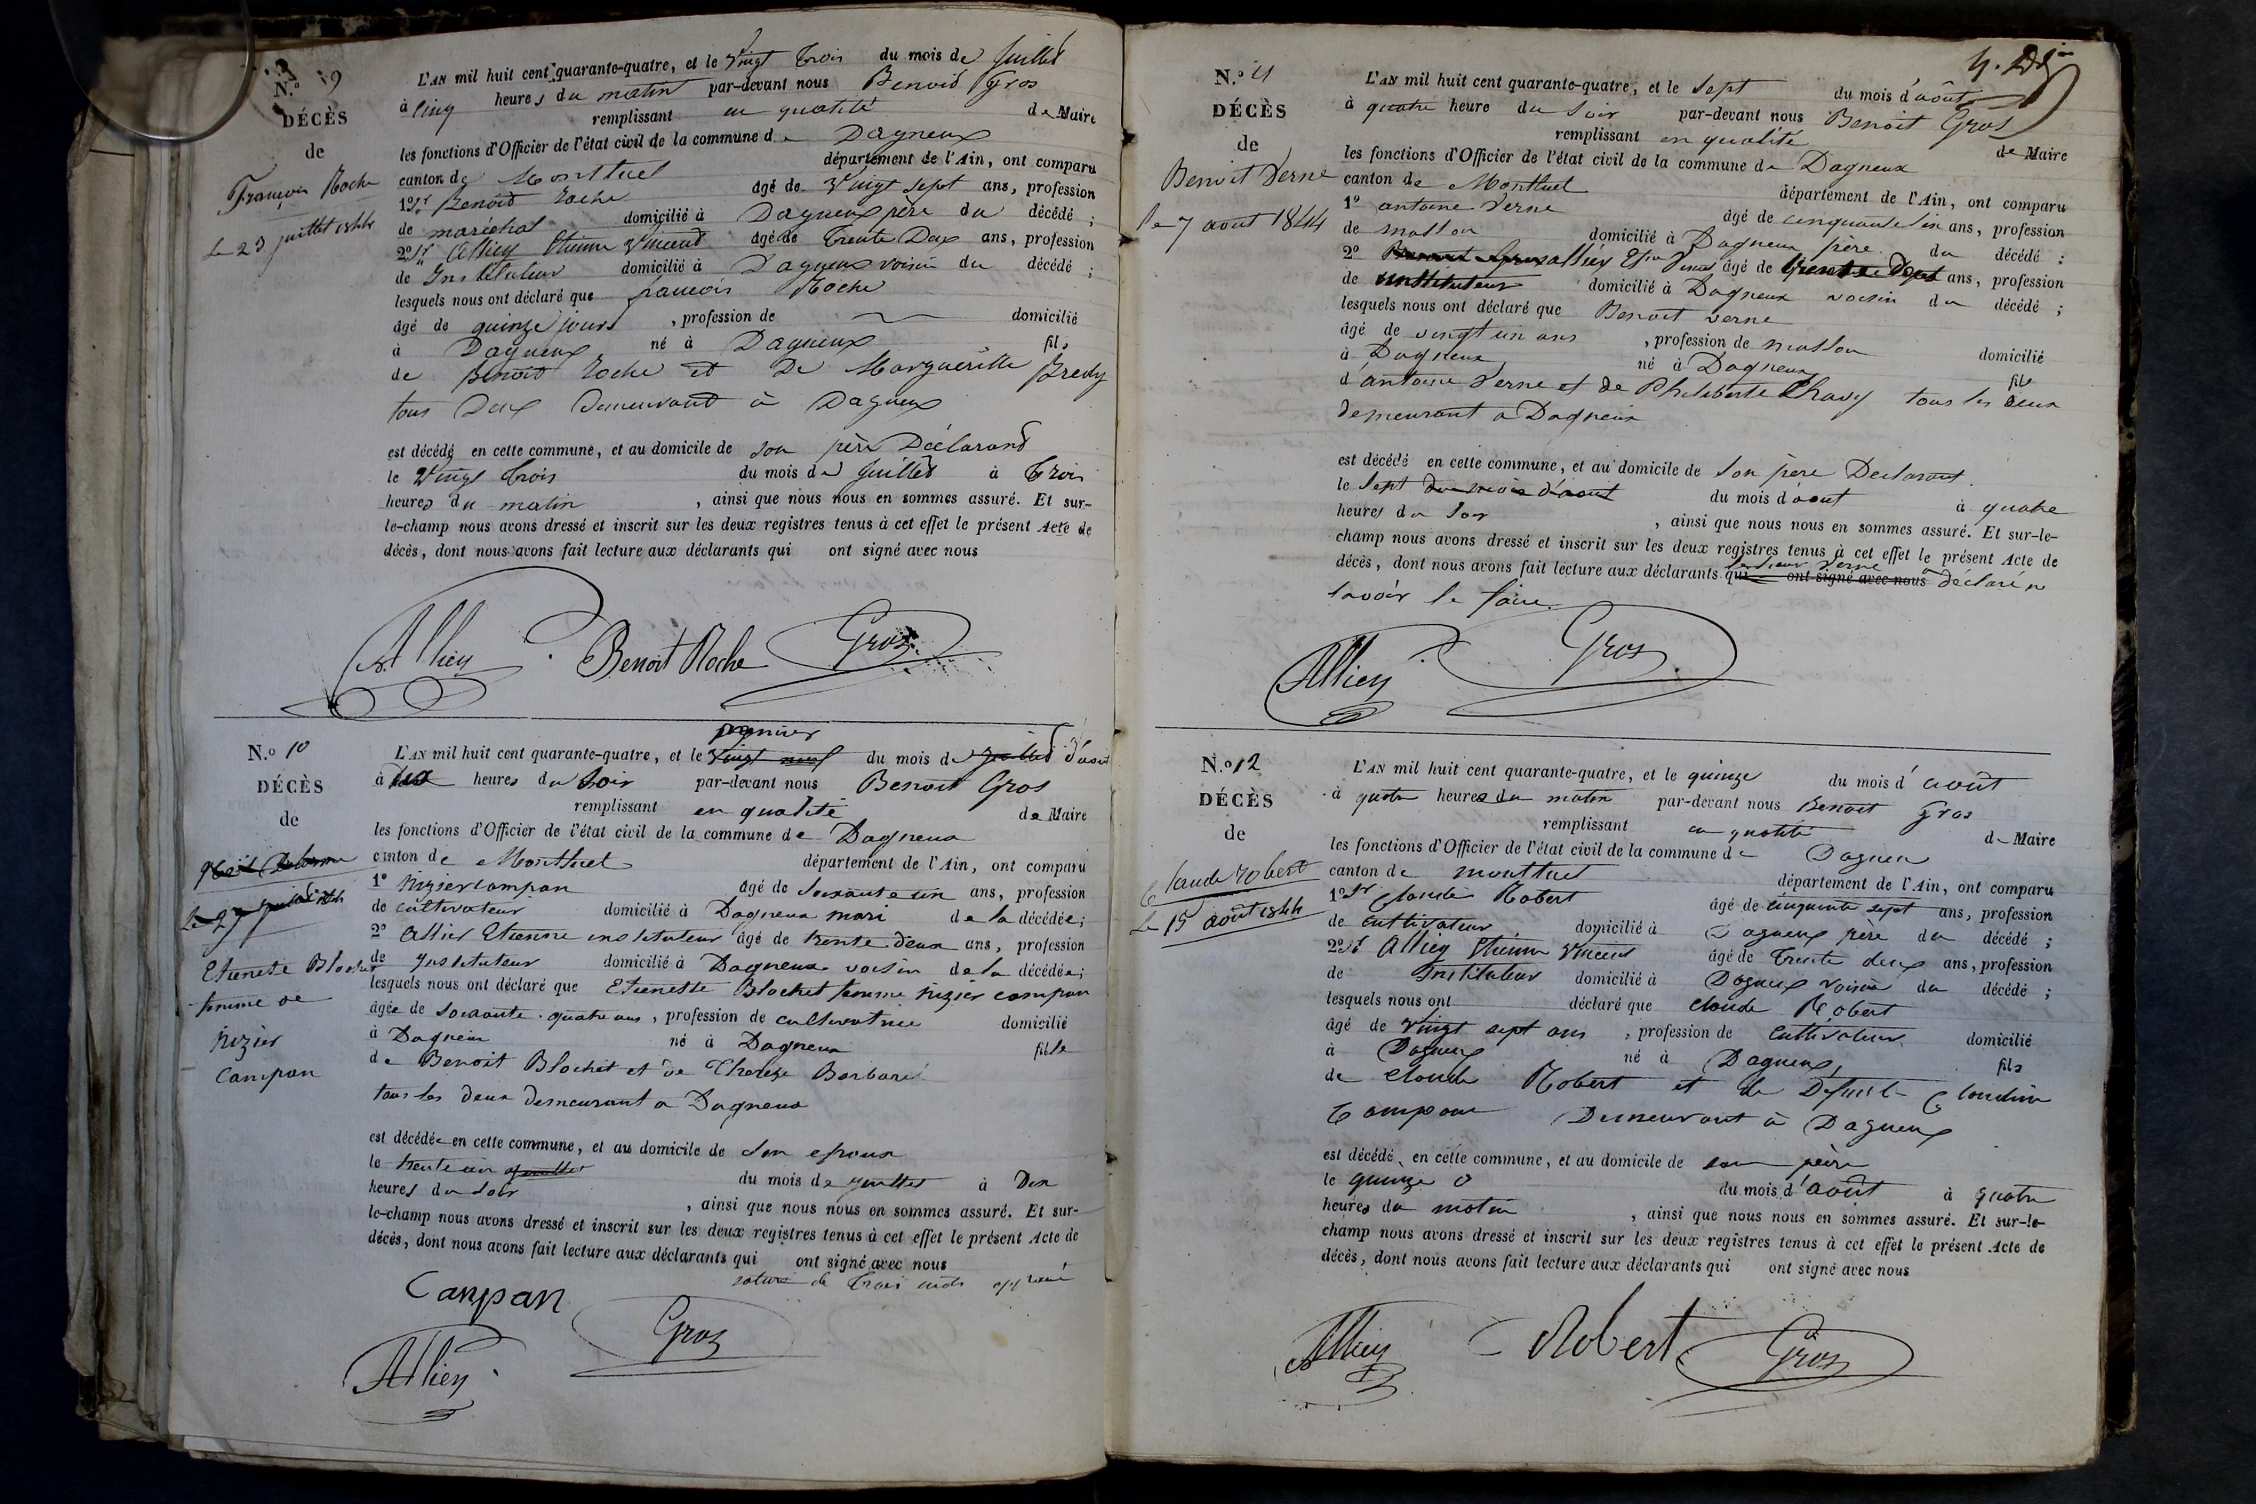 N.o 9
DÉCÈS
de
François Roche
Le 23 juillet 1844
L'AN mil huit cent quarante-quatre, et le Vingt Trois du mois de Juillet
à cinq heures du matin par-devant nous Benoit Gros
remplissant en qualité de Maire
les fonctions d'Officier de l'état civil de la commune de Dagneux
canton de Montluel département de l'Ain, ont comparu
1o Sr Benoit Roche âgé de Vingt Sept ans, profession
de maréchal domicilié à Dagneux père du décédé ;
2o Sr Alliey Etienne Vincent âgé de Trente Deux ans, profession
de Instituteur domicilié à Dagneux voisin du décédé ;
lesquels nous ont déclaré que francois Roche
âgé de quinze jours , profession de domicilié
à Dagneux né à Dagneux fils
de Benoit Roche et De Margueritte Bredy
tous Deux Demeurant à Dagneux
est décédé en cette commune, et au domicile de son père Déclarant
le Vingt Trois du mois de Juillet à Trois
heures du matin , ainsi que nous nous en sommes assuré. Et sur-
le-champ nous avons dressé et inscrit sur les deux registres tenus à cet effet le présent Acte de
décès, dont nous avons fait lecture aux déclarants qui ont signé avec nous
Alliey Benoit Roche Gros
N.o 10
DÉCÈS
de
Le 29 juillet 1844
Etienete Blochet
femme de
nizier
Campan
premier
L'AN mil huit cent quarante-quatre, et le Vingt neuf du mois de Juillet d'aout
à heures du Soir par-devant nous Benoit Gros
remplissant en qualité de Maire
les fonctions d'Officier de l'état civil de la commune de Dagneux
canton de Montluel département de l'Ain, ont comparu
1o Nizier Campan âgé de Soixante un ans, profession
de cultivateur domicilié à Dagneux mari de la décédée;
2o Allier Etienne instituteur âgé de trente deux ans, profession
de Instituteur domicilié à Dagneux voisin de la décédée;
lesquels nous ont déclaré que Etienette Blochet femme nizier campan
âgée de soixante quatre ans, profession de cultivatrice domicilié
à Dagneux né à Dagneux fille
de Benoit Blochet et de Thereze Barbaré
tous les deux demeurant a Dagneux
est décédée en cette commune, et au domicile de son epoux
le trente un juillet du mois de juillet à Dix
heures du soir , ainsi que nous nous en sommes assuré. Et sur-
le-champ nous avons dressé et inscrit sur les deux registres tenus à cet effet le présent Acte de
décès, dont nous avons fait lecture aux déclarants qui ont signé avec nous
rature de Trois mots approuvé
Campan
Gros
Alliey
N.o 11
DÉCÈS
de
Benoit Verne
le 7 aout 1844
L'AN mil huit cent quarante-quatre, et le Sept du mois d'août
à quatre heure du Soir par-devant nous Benoit Gros
remplissant en qualité de Maire
les fonctions d'Officier de l'état civil de la commune de Dagneux
canton de Montluel département de l'Ain, ont comparu
1o antoine Verne âgé de cinquante six ans, profession
de masson domicilié à Dagneux père du décédé ;
2o alliey âgé de ans, profession
de instituteur domicilié à Dagneux voisin du décédé ;
lesquels nous ont déclaré que Benoit verne
âgé de vingt un ans , profession de masson domicilié
à Dagneux né à Dagneux fils
d'antoine Verne et de Philiberte Chavy tous les deux
demeurant a Dagneux
est décédé en cette commune, et au domicile de son père Declarant
le Sept du mois d'aout du mois d'aout à quatre
heures du soir , ainsi que nous nous en sommes assuré. Et sur-le-
champ nous avons dressé et inscrit sur les deux registres tenus à cet effet le présent Acte de
décès, dont nous avons fait lecture aux déclarants qui ont signé avec nous le sieur Verne a déclaré ne
savoir le faire.
Alliey Gros
N.o 12
DÉCÈS
de
Claude Robert
Le 15 août 1844
L'AN mil huit cent quarante-quatre, et le quinze du mois d'août
à quatre heures du matin par-devant nous Benoit Gros
remplissant en qualité de Maire
les fonctions d'Officier de l'état civil de la commune de Dagneux
canton de montluel département de l'Ain, ont comparu
1o Sr Claude Robert âgé de cinquante sept ans, profession
de cultivateur domicilié à Dagneux père du décédé ;
2o Sr Alliey Etienne Vincent âgé de Trente deux ans, profession
de Instituteur domicilié à Dagneux voisin du décédé ;
lesquels nous ont déclaré que claude Robert
âgé de Vingt sept ans , profession de cultivateur domicilié
à Dagneux né à Dagneux, fils
de claude Robert et de Défunte Claudine
Campan Demeurant à Dagneux
est décédé en cette commune, et au domicile de son père
le quinze du mois d'août à quatre
heures du matin , ainsi que nous nous en sommes assuré. Et sur-le-
champ nous avons dressé et inscrit sur les deux registres tenus à cet effet le présent Acte de
décès, dont nous avons fait lecture aux déclarants qui ont signé avec nous
Alliey Robert Gros